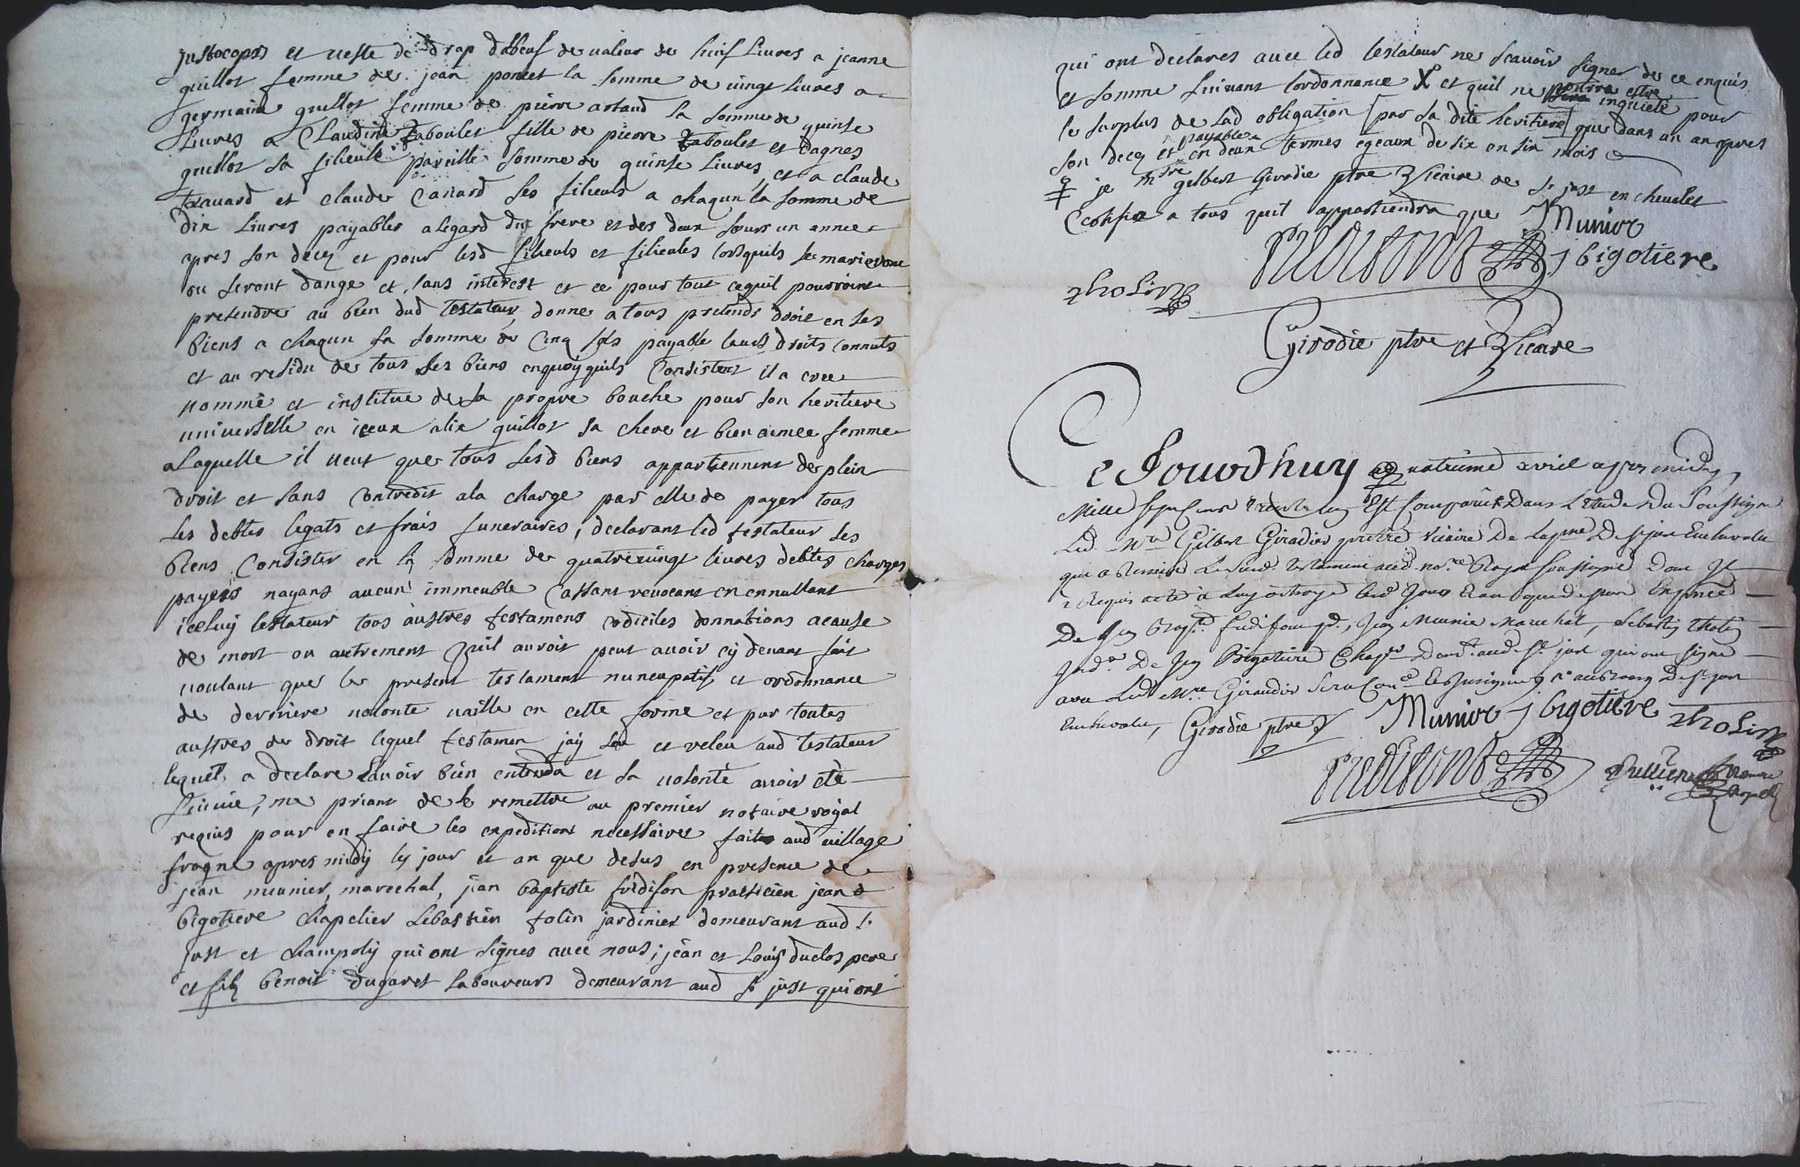 justocops et veste de drap dolbeuf de valeur de huit Livres a jeanne
guillot femme de jean poncet la somme de vingt livres a
germaine guillot femme de pierre artaud la somme de quinse
Livres a Claudine taboulet fille de pierre taboulet et dagnes
guillot sa filieule pareille somme de quinse Livres, et a claude
et claude Canard ses filieuls a chaqun la somme de
dix livres payables alegard du frere et des deux soeurs un annee
apres son decez et pour lesd filieuls et filieules lorsquils se marieront
ou seront dange et sans interest et ce pour tout cequil pourroint
pretendre au bien dud testateur, donne a tous pretends droit en ses
biens a chaqun la somme de Cinq sols payable leurs droits connuts
et au residu de tous ses biens enquoy quils Consistent il a cree
nommé et institue de sa propre bouche pour son heritiere
universelle en iceux alix guillot sa chere et bien aimee femme
a Laquelle il veut que tous sesd biens appartiennent de plein
droit et sans contredit a la charge par elle de payer tous
ses debtes legats et frais funeraires, declarant led testateur ses
biens Consister en la somme de quatrevingt livres debtes charges
payeés nayant aucun immeuble Cassant revocant en ennullant
iceluy testateur tous austres testamens codiciles donnations acause
de mort ou autrement quil auroit peut avoir cy devant fait
voulant que le present testament nuncupatif et ordonnance
de derniere volonte vaille en cette forme et par toutes
austres de droit lequel testamen jay leu et releu aud testateur
lequel a declare lavoir bien entendu et sa volonté avoir eté
suivie, me priant de le remettre au premier notaire royal
requis pour en faire les expeditions necessaires fait aud village
frogne apres midy les jour et an que desus en presence de
jean meunier, marechal, jean baptiste fredison praticien jean
bigotiere chapelier sebastien tolin jardinier demeurant aud St
just et champoly qui ont signes avec nous; jean et Louis duclos pere
et fils benoit dugaret laboureurs demeurant aud St just qui ont
qui ont declares avec led testateur ne scavoir signer de ce enquis
et somme suivant lordonnance X et quil ne pourra estre inquieté pour
le surplus de lad obligation par sa dite heritiere que dans un an apres
son decez et payable en deux termes egeaux de six en six mois
je Mre gilbert Girodie ptre Vicaire de St just en chevalet
Certifie a tous quil appartiendra que Munier
fredisond j bigotiere
tholin
Girodie ptre et Vicaire
Ce Jourdhuy quatrieme avril apres midy,
Mille sept cent trente Est comparû Dans L'étude Du Soussigné
Led Mre Gilbert Giradier prettre vicaire De lapsse De St just Enchevalet
que a remis Le susd testament aud nore Royal soussigné dont Il
a Requis acte a Luy octroyé lesd Jour et an que dessus En presce
De Jean Bapte Jean Munier Marechal, Sebastien tholin
Jardr De Jean Bigotiere Chapr Demt aud St just qui ont signé
avec Led Mre Giraudier au bourg De St just
Enchevalet, Girodie ptre V Munier j bigotiere tholin
fredisond